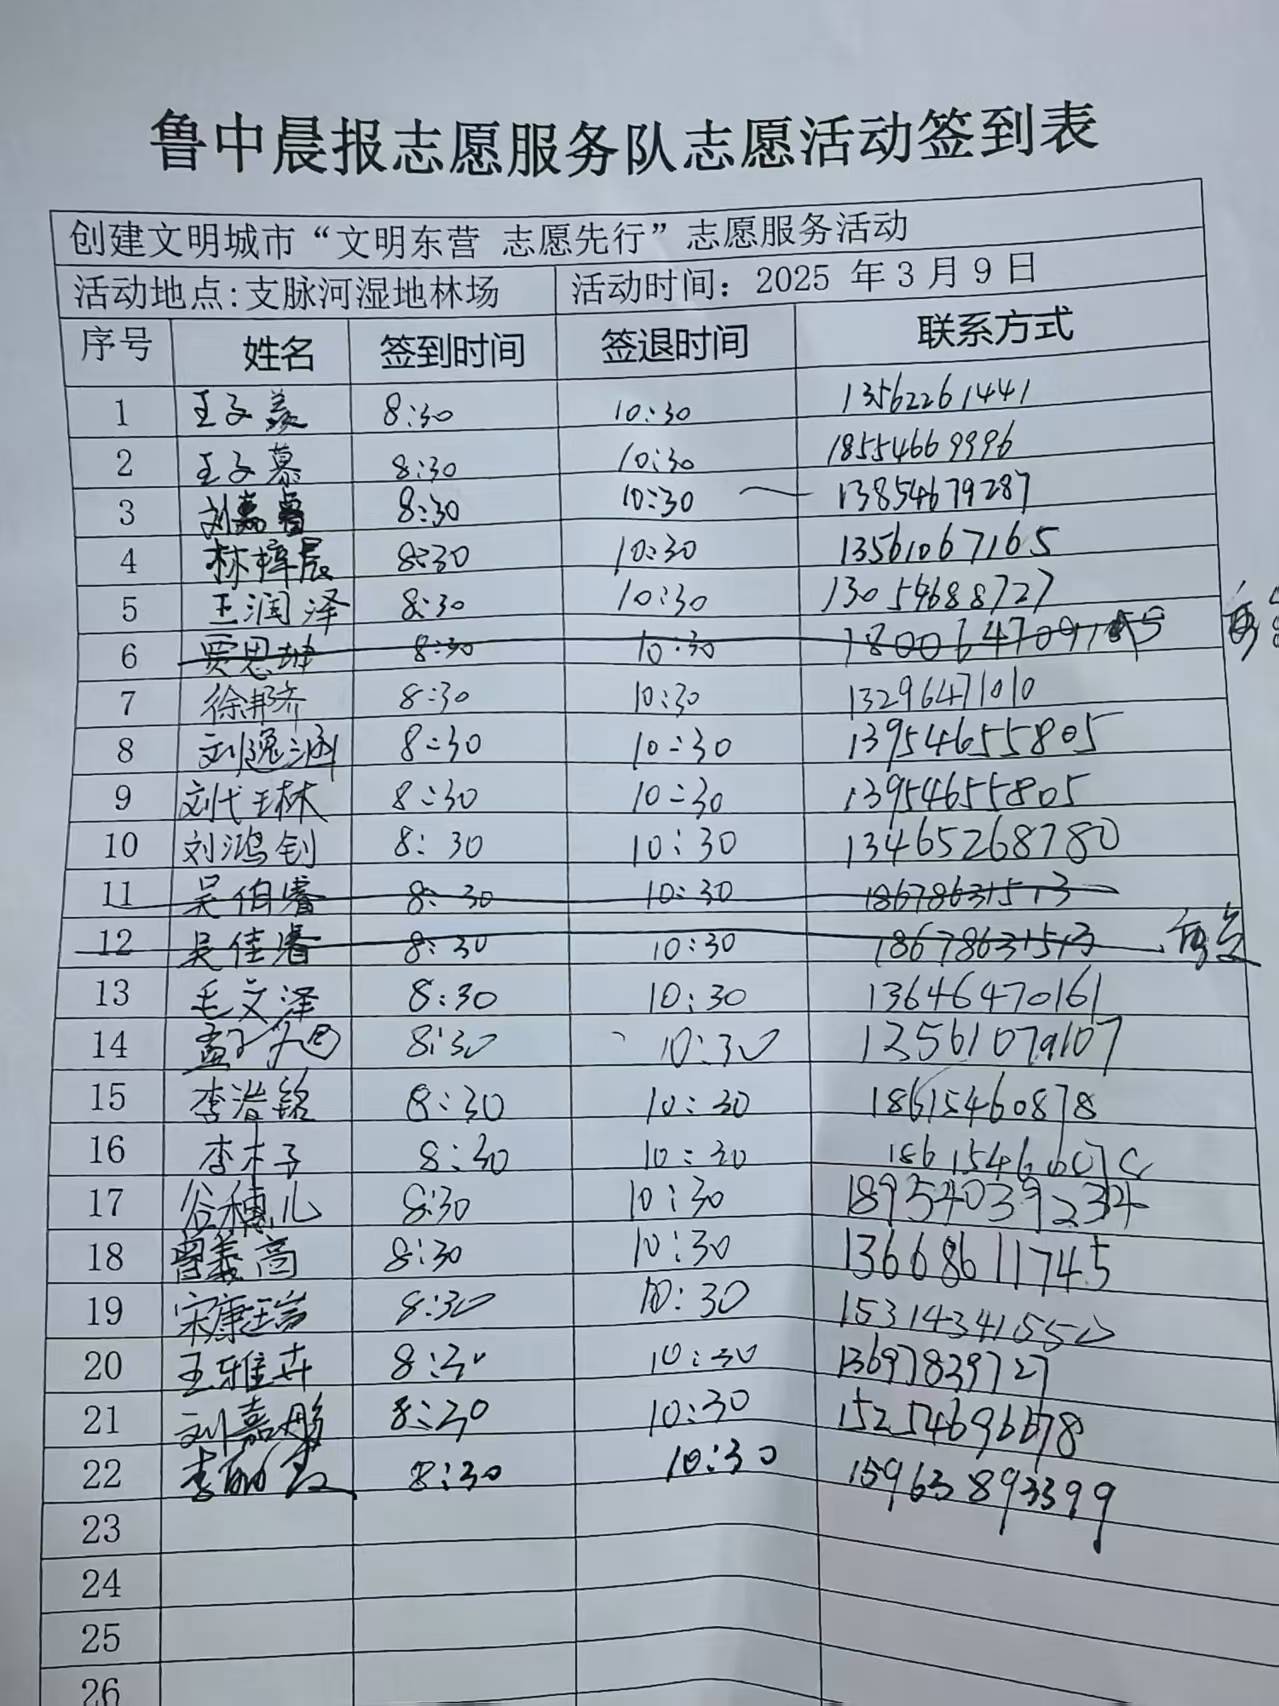 鲁中晨报志愿服务队志愿活动签到表
创建文明城市“文明东营 志愿先行”志愿服务活动
活动地点:支脉河湿地林场 活动时间：2025 年3月9日
序号 姓名 签到时间 签退时间 联系方式
1 王子羨 8:30 10:30 13562261441
2 王子慕 8:30 10:30 18554669996
3 刘嘉睿 8:30 10:30 13854679287
4 林梓晨 8:30 10:30 13561067165
5 王润泽 8:30 10:30 13054688727
6 贾思坤 8:30 10:30
7 徐邦齐 8:30 10:30 13296471010
8 刘逸涵 8:30 10:30 13954655805
9 刘代玉林 8:30 10:30 13954655805
10 刘鸿钊 8:30 10:30 13465268780
11 吴伯睿 8:30 10:30 18678631513
12 吴佳睿 8:30 10:30 18678631513
13 毛文泽 8:30 10:30 13646470161
14 孟子旭 8:30 10:30 13561079107
15 李浩铭 8:30 10:30 18615460878
16 李木子 8:30 10:30
17 谷穗儿 8:30 10:30 18954039234
18 曾美高 8:30 10:30 13668611745
19 宋康瑞 8:30 10:30 15314341550
20 王雅卉 8:30 10:30 13697839727
21 刘嘉彤 8:30 10:30 15254696678
22 李 8:30 10:30 15963893399
23
24
25
26